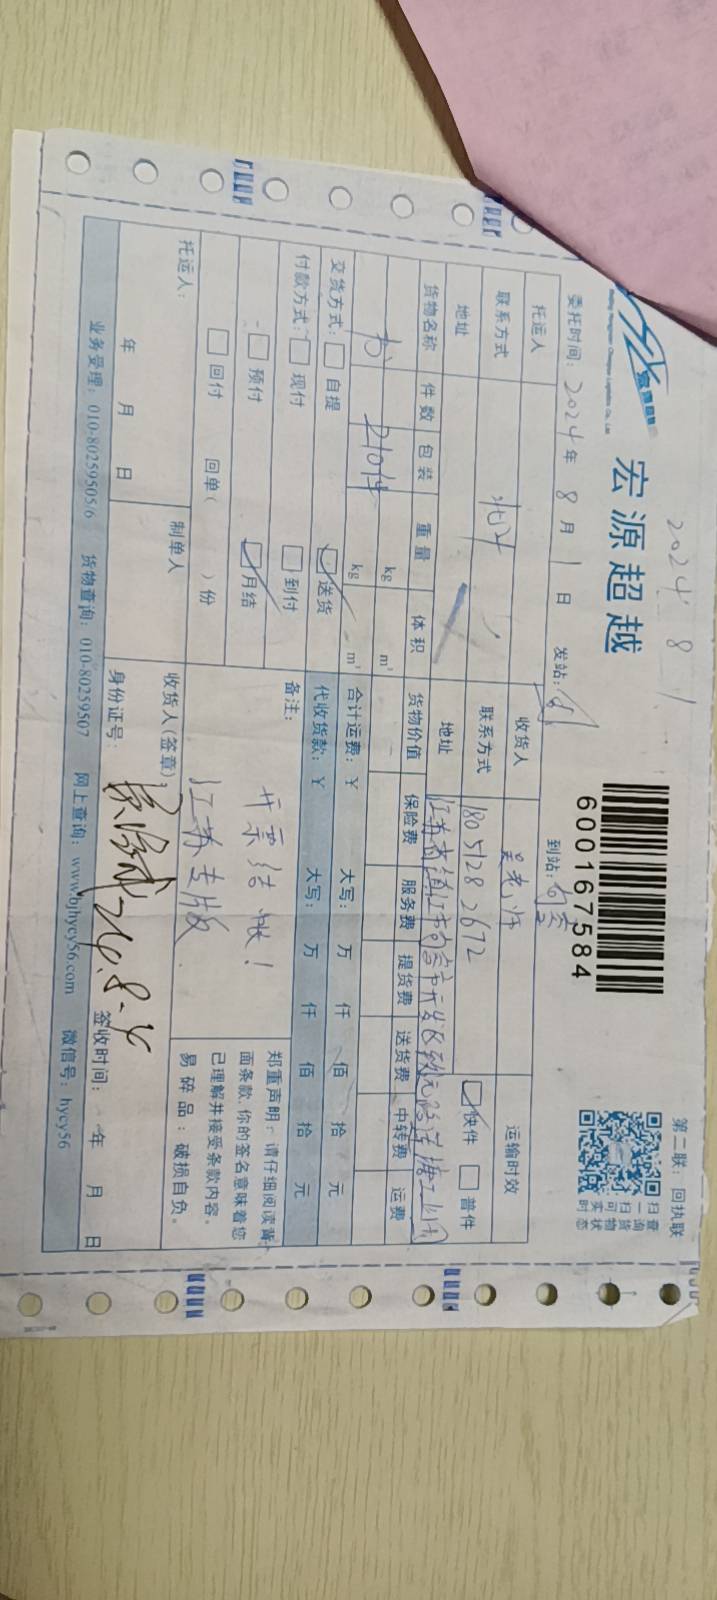 2024 8 1
宏源超越
600167584
第二联：回执联
扫一扫可实时
查询货物状态
委托时间：2024年 8月 1日 发站：
到站：句容
托运人
收货人
运输时效
联系方式
北
联系方式
180 5128 2672
快件 普件
地址
地址
江苏省镇江市句容市开发区
货物名称 件数 包装 重量 体积 货物价值 保险费 服务费 提货费 送货费 中转费 运费
kg m³
210件 kg m³
交货方式： 自提 送货 合计运费：￥ 大写： 万 仟 佰 拾 元
付款方式： 现付 到付 代收货款：￥ 大写： 万 仟 佰 拾 元
预付 月结 备注：
北京结账！
江苏专版
回付 回单( )份
郑重声明：请仔细阅读背
面条款，你的签名意味着您
已理解并接受条款内容。
易碎品：破损自负。
托运人：
年 月 日
制单人
收货人(签章)
身份证号：
24.8-4
签收时间： 年 月 日
业务受理：010-80259505/6 货物查询：010-80259507 网上查询：www.bjhycy56.com 微信号：hycy56